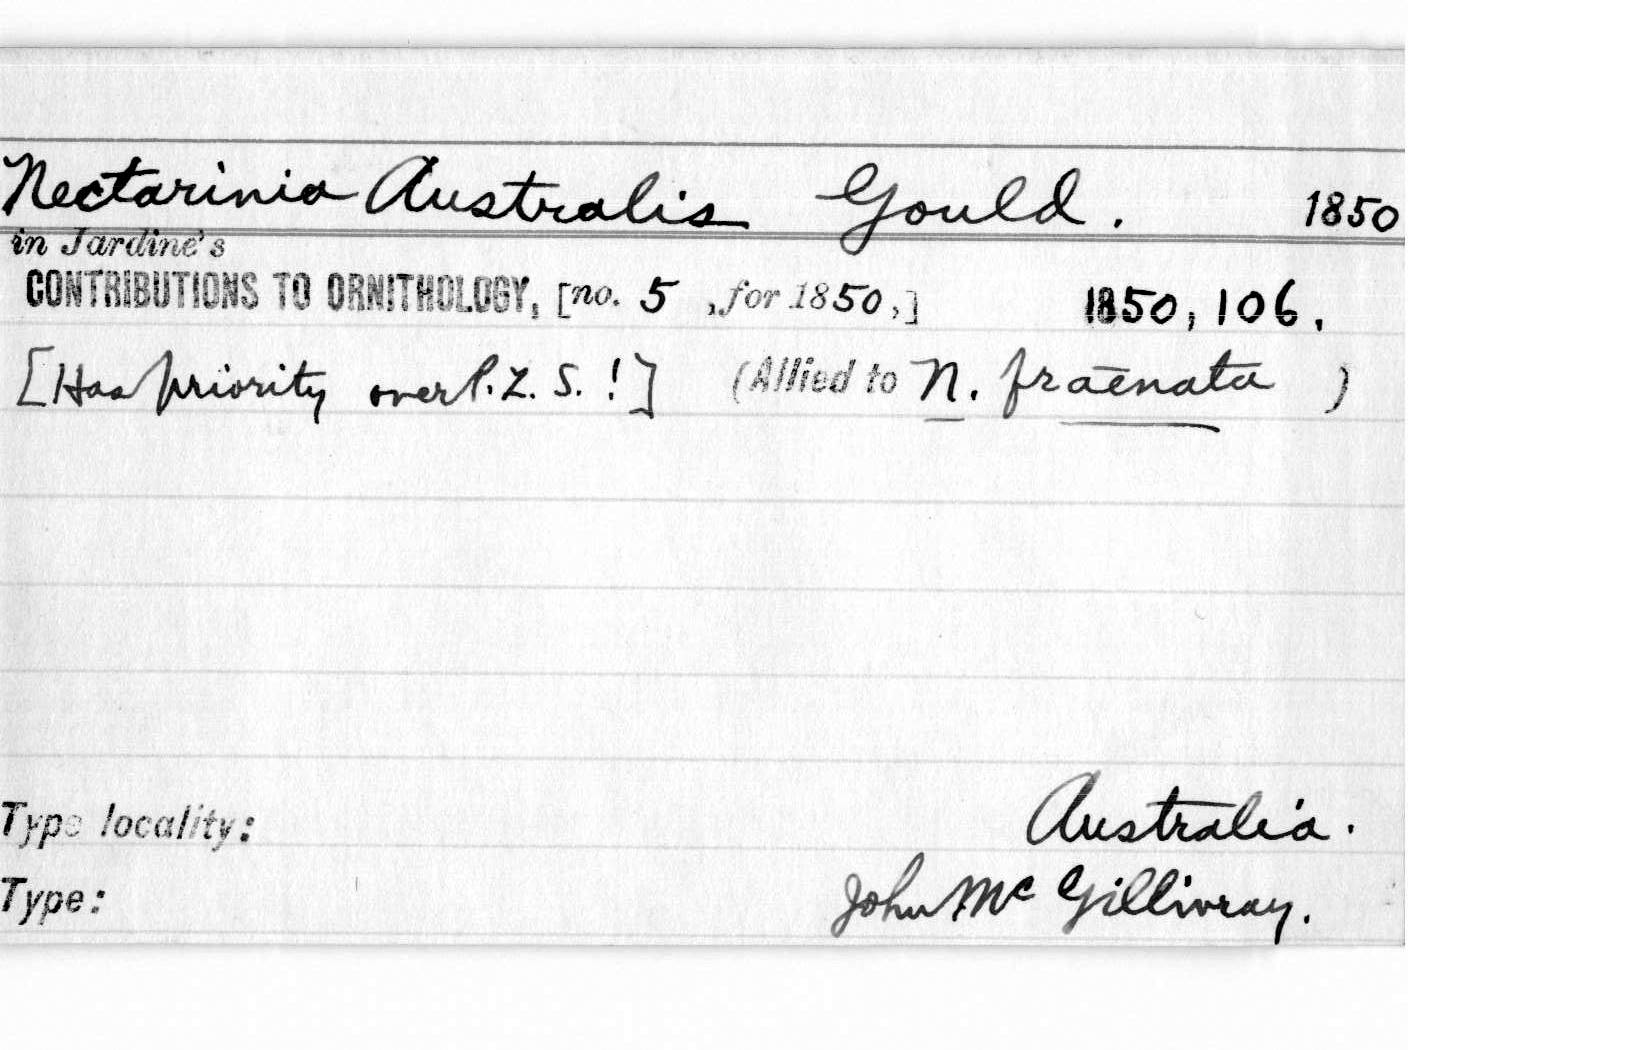 Nectarinia Australis Gould. 1850
in Jardine's
CONTRIBUTIONS TO ORNITHOLOGY, [no. 5 , for 1850,] 1850, 106.
[Has priority over P.Z.S.!] (Allied to N. fraenata )
Type locality: Australia.
Type: John Mc Gillivray.